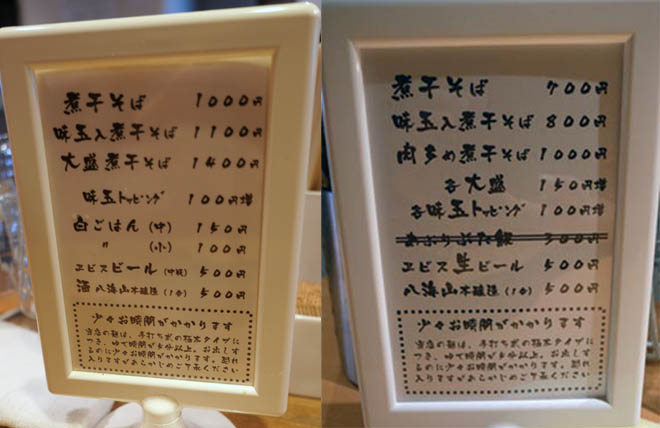 煮干そば 1000円
味玉入煮干そば 1100円
大盛煮干そば 1400円
味玉トッピング 100円増
白ごはん(中) 150円
〃 (小) 100円
ヱビスビール(中瓶) 500円
酒 八海山本醸造(1合) 500円
少々お時間がかかります
当店の麺は、手打ち式の極太タイプに
つき、ゆで時間が
ものに少々お時間がかかります。恐れ
入りますがあらかじめご了承ください
煮干そば 700円
味玉入煮干そば 800円
肉多め煮干そば 1000円
各大盛 150円増
各味玉トッピング 100円増
あぶりぶた飯 300円
ヱビス生ビール 500円
八海山本醸造(1合) 500円
少々お時間がかかります
当店の麺は、手打ち式の極太タイプに
つき、ゆで時間が
ものに少々お時間がかかります。恐れ
入りますがあらかじめご了承ください